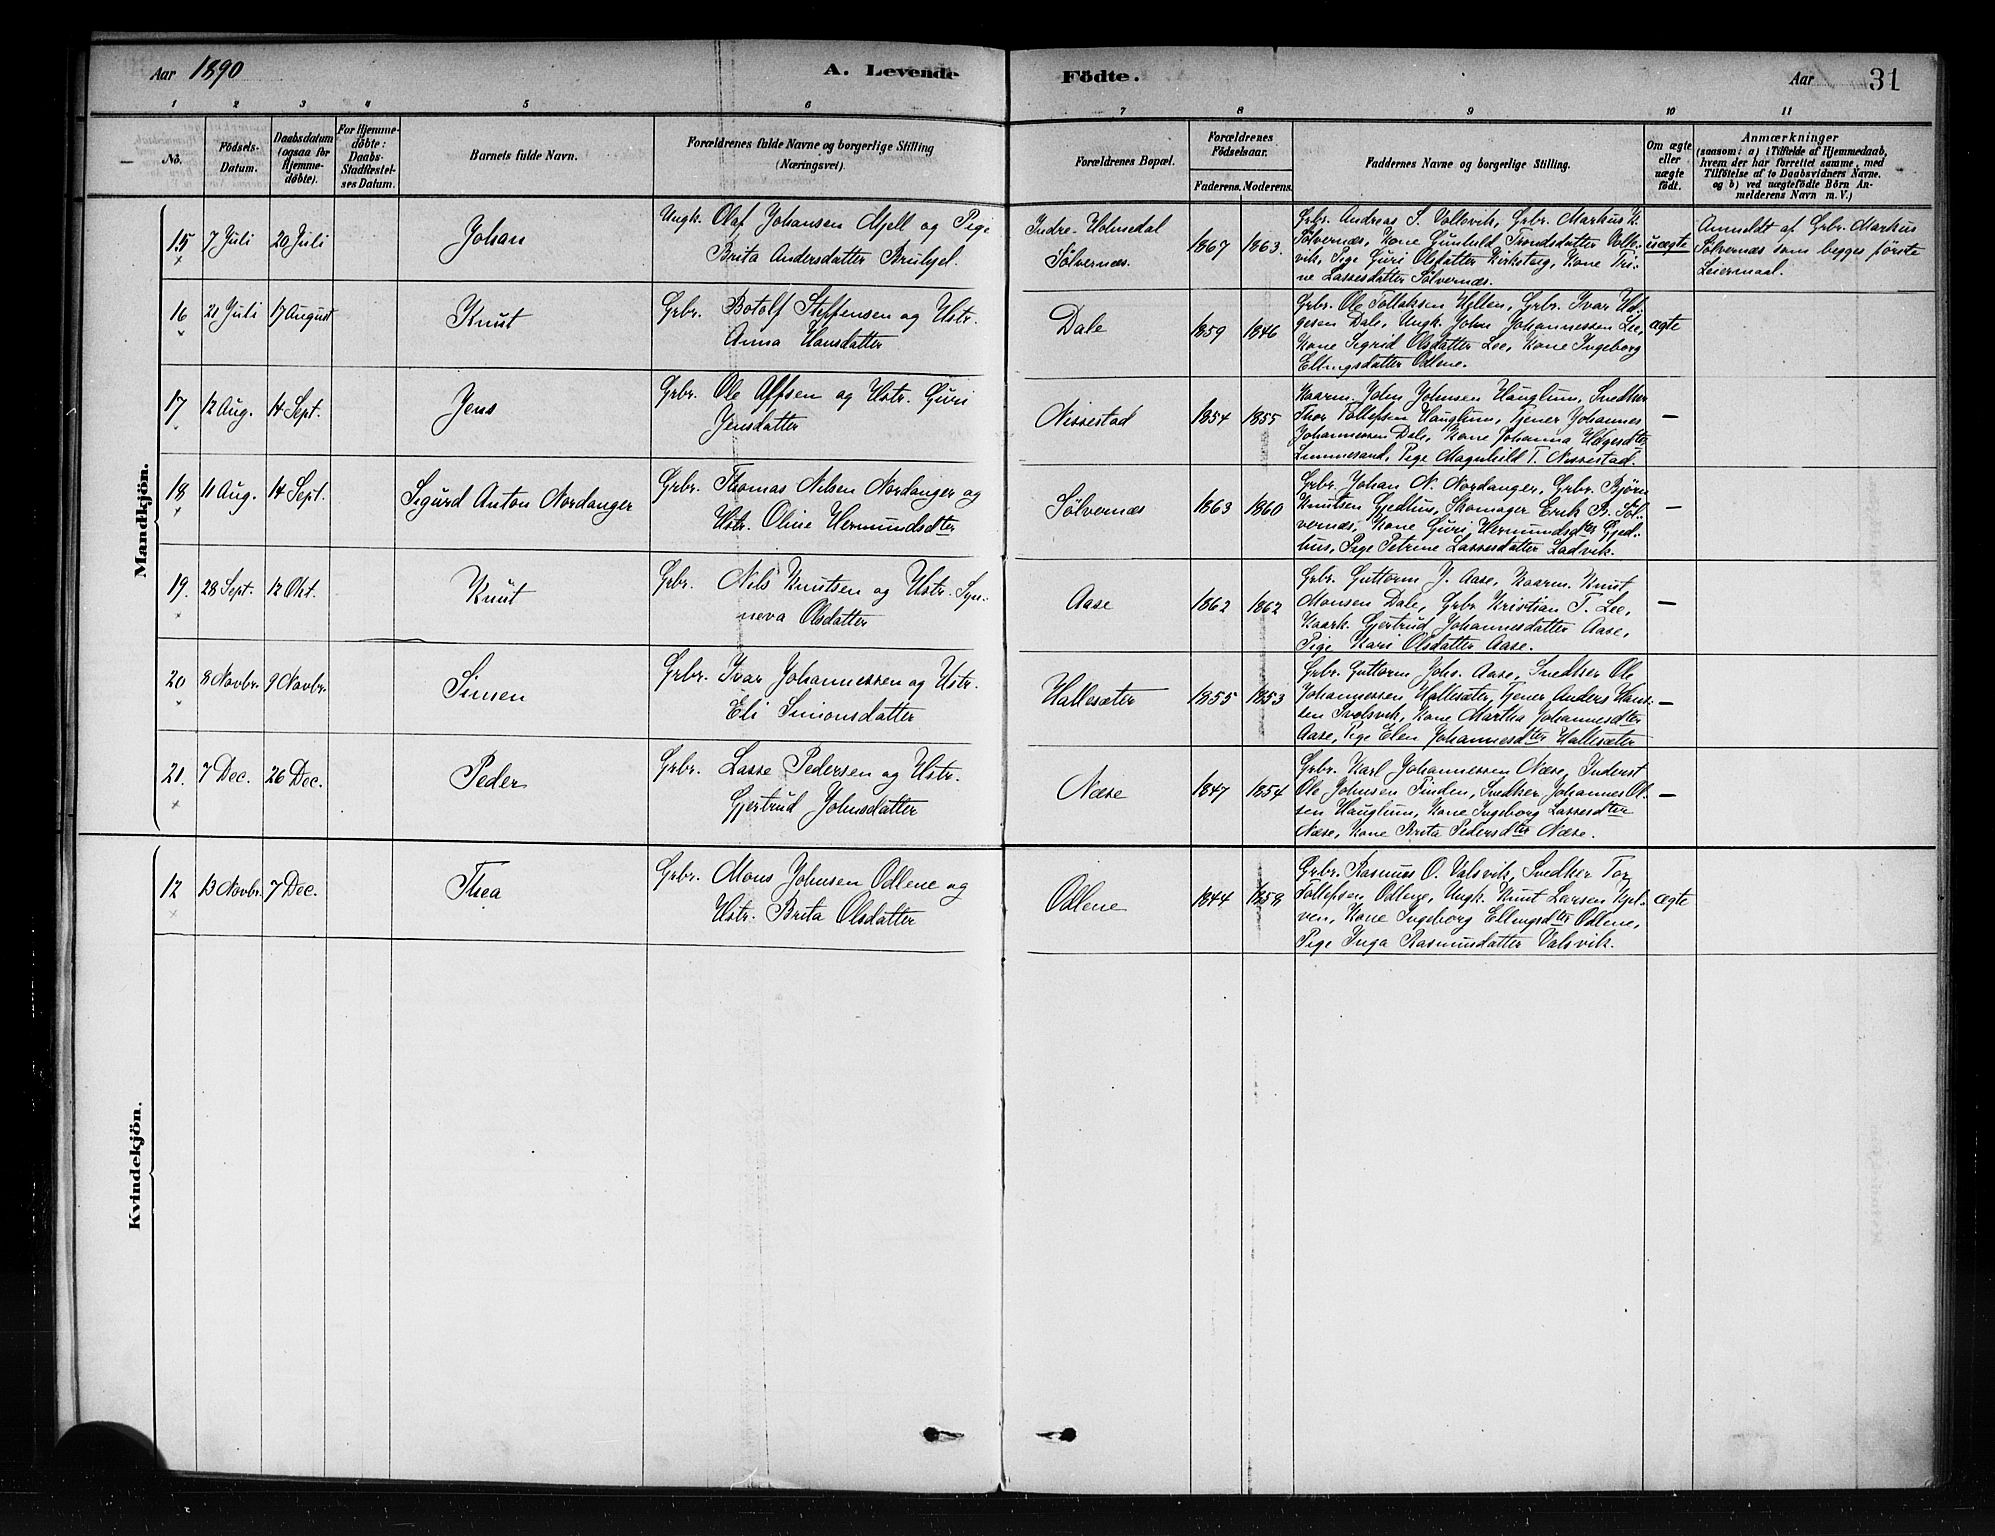 Aar 1890 A. Levende Födte. Aar 31
1 2 3 4 5 6 7 8 9 10 11
No.
Födsels-Datum.
Daabsdatum (ogsaa for Hjemme-døbte).
For Hjemme-døbte: Daabs-Stadfæstel-ses Datum.
Barnets fulde Navn.
Forældrenes fulde Navne og borgerlige Stilling
(Næringsvei).
Forældrenes Bopæl.
Forældrenes Födselsaar.
Faderens. Moderens.
Faddernes Navne og borgerlige Stilling.
Om ægte eller uægte födt.
Anmærkninger
(saasom: a) i Tilfælde af Hjemmedaab,
hvem der har forrettet samme, med
Tilföielse af to Daabsvidners Navne.
og b) ved uægtefödte Börn An-
melderens Navn m. V.)
Mandkjön.
15 7 Juli 20 Juli Johan
Ungk. Olaf Johansen Mjell og Pige
Brita Andersdatter Bruhjel.
Indre-Holmedal
Sölvernæs.
1867 1863.
Grbr. Andreas S. Valsvik, Grbr. Markus K.
Sölvernæs, Kone Gunhild Trondsdatter Vals-
vik, Pige Guri Olsdatter Kirketeig, Kone Tri-
ne Lassesdatter Sölvernæs.
uægte
Anmeldt af Grbr. Markus
Sölvernæs som begges förste
Leiermaal.
16 21 Juli 17 August Knut
Grbr. Botolf Steffensen og Hstr.
Anna Hansdatter
Dale
1859 1846
Grbr. Ole Tollaksen Hellen, Grbr. Ivar Hel-
gesen Dale, Ungk. John Johannessen Lee,
Kone Sigrid Olsdatter Lee, Kone Ingeborg
Ellingsdatter Odlene.
ægte
17 12 Aug. 14 Sept. Jens
Grbr. Ole Alfsen og Hstr. Guri
Jensdatter
Nissestad
1854 1855
Kaarm. John Johnsen Hauglum, Snedker
Thor Tollefsen Hauglum, Tjener Johannes
Johannessen Dale, Kone Johanna Helgesdter
Lammesand, Pige Magnhild T. Nissestad.
—
18 11 Aug. 14 Sept. Sigurd Anton Nordanger
Grbr. Thomas Nilsen Nordanger og
Hstr. Oline Hermundsdter
Sölvernæs
1863 1860
Grbr. Johan N. Nordanger, Grbr. Björn
Knutsen Gjedhus, Skomager Erik B. Söl-
vernæs, Kone Guri Hermundsdter Gjed-
hus, Pige Petrine Lassesdatter Ladvik.
—
19. 28 Sept. 12 Okt. Knut
Grbr. Nils Knutsen og Hstr. Syn-
neva Olsdatter
Aase
1862 1862
Grbr. Guttorm J. Aase, Kaarm. Knut
Monsen Dale, Grbr. Kristian T. Lee,
Kaark. Gjertrud Johannesdatter Aase,
Pige Kari Olsdatter Aase.
—
20 8 Novbr. 9 Novbr. Simen
Grbr. Ivar Johannessen og Hstr.
Eli Simonsdatter
Hallesæter
1855 1853
Grbr. Guttorm Johs. Aase, Snedker Ole
Johannessen Hallesæter, Tjener Anders Hans-
sen Kone Martha Johannesdter
Aase, Pige Elen Johannesdter Hallesæter
—
21. 7 Dec. 26 Dec. Peder
Grbr. Lasse Pedersen og Hstr.
Gjertrud Johnsdatter
Næse
1847 1854
Grbr. Karl Johannessen Næse, Inderst
Ole Johnsen Tinden, Snedker Johannes Ol-
sen Hauglum, Kone Ingeborg Lassesdter
Næse, Kone Brita Pedersdter Næse.
—
Kvindekjön.
12 13 Novbr. 7 Dec. Thea
Grbr. Mons Johnsen Odlene og
Hstr. Brita Olsdatter
Odlene
1844 1859
Grbr. Rasmus O. Valsvik, Snedker Tor
Tollefsen Odlene, Ungk. Knut Larsen
Kone Ingeborg Ellingsdter Odlene,
Pige Inga Rasmusdatter Valsvik.
ægte